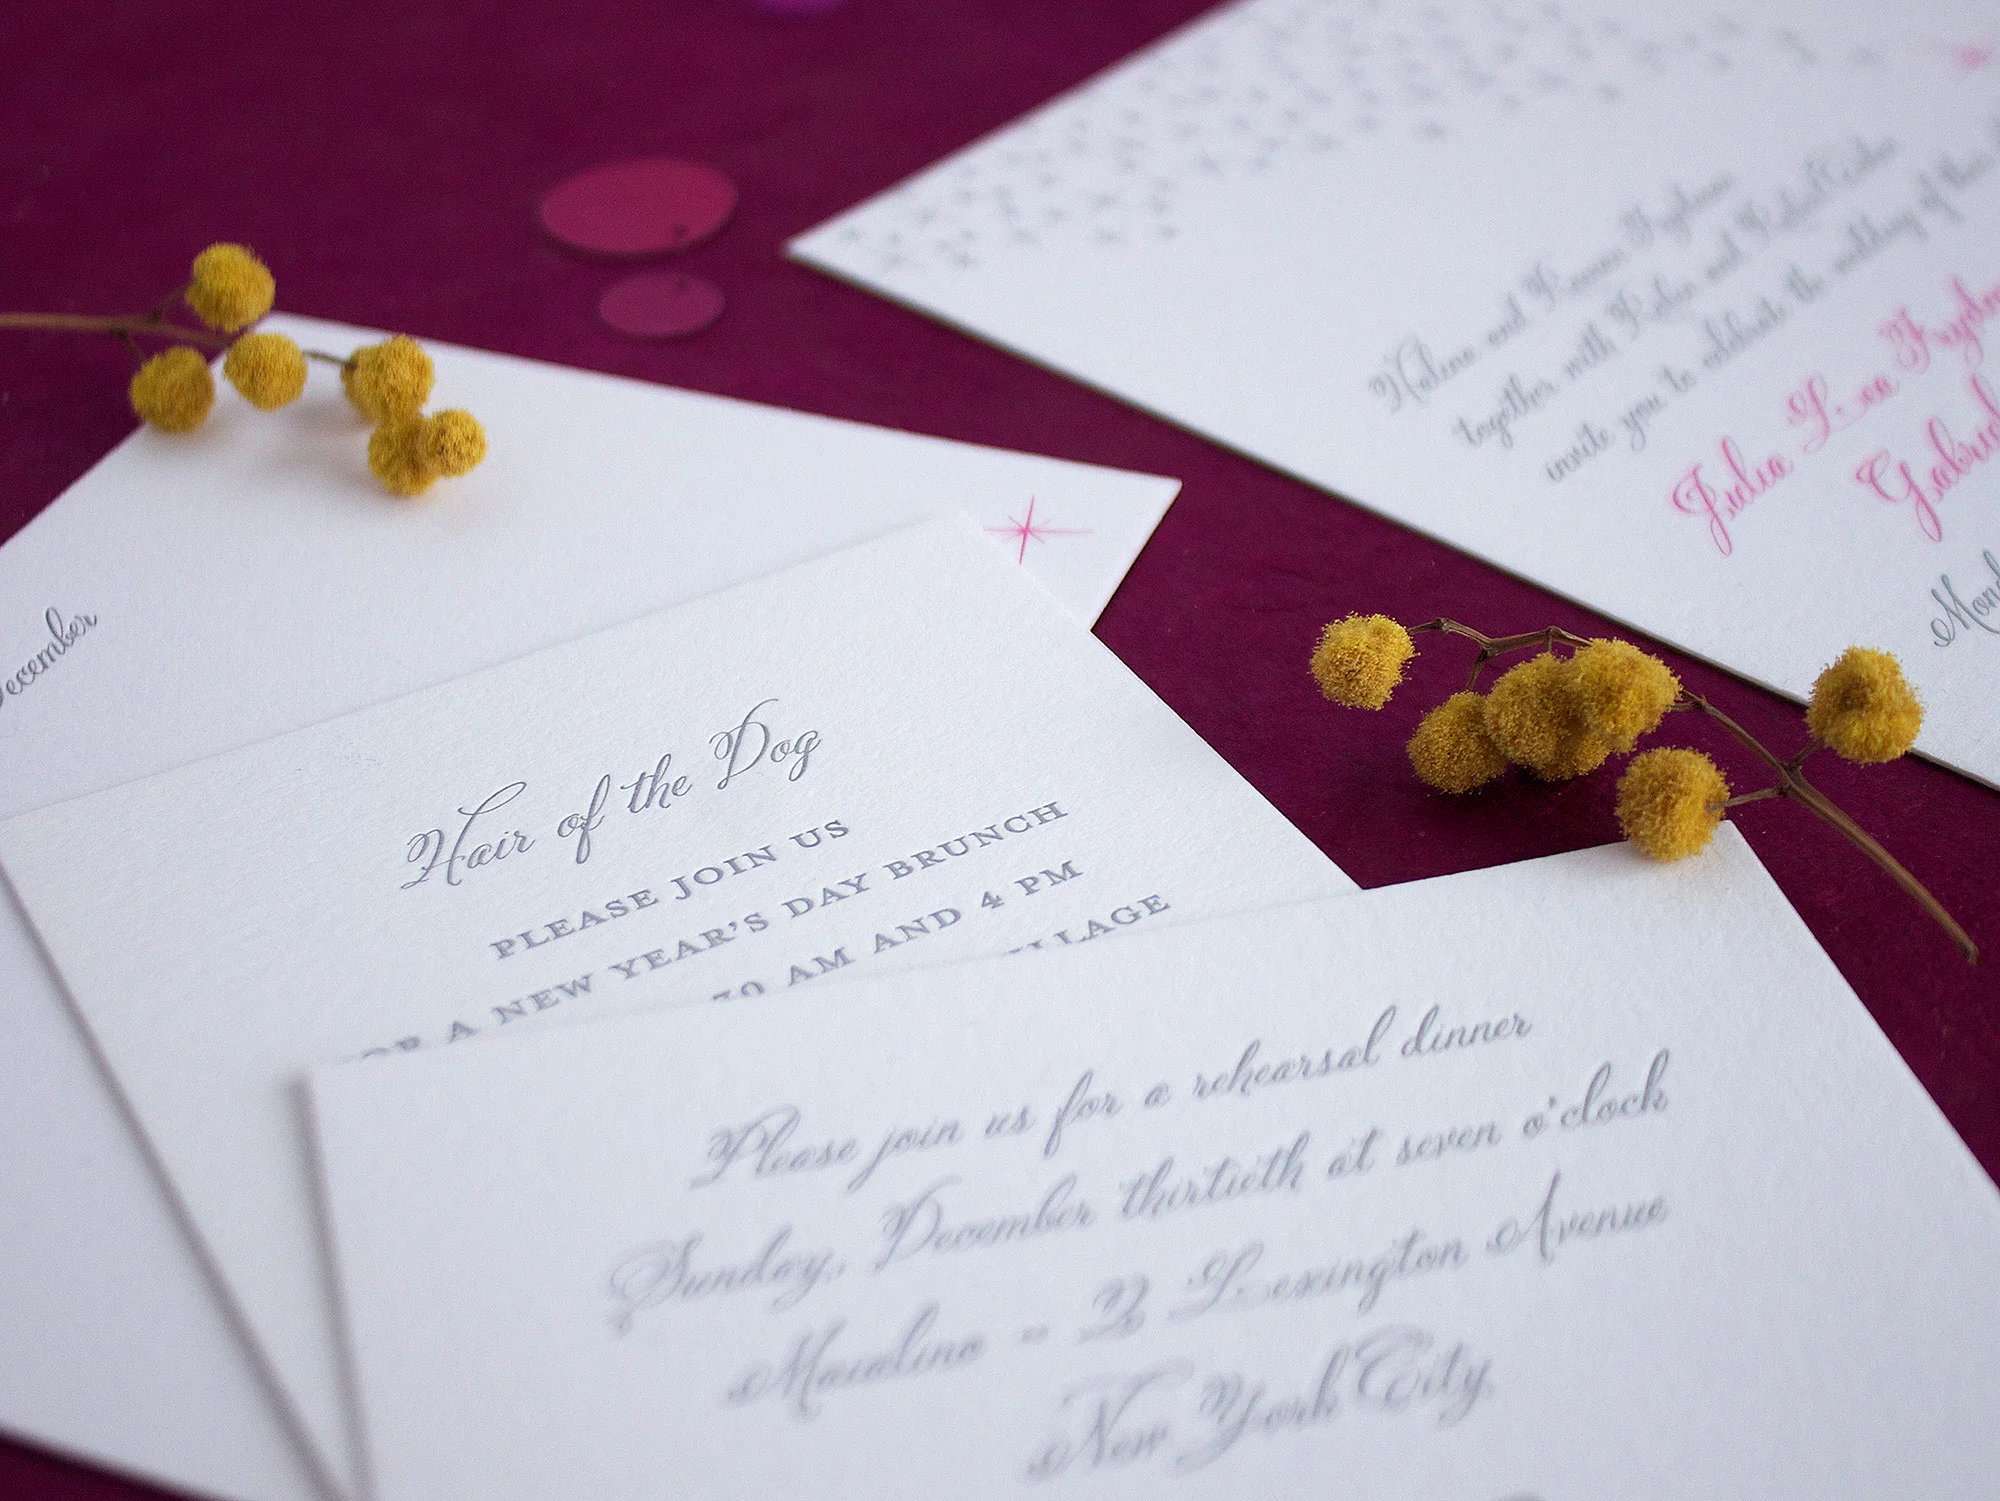 together with
invite you to celebrate the wedding of
Julia
Gabriel
Hair of the Dog
PLEASE JOIN US
A NEW YEAR'S DAY BRUNCH
30 AM AND 4 PM
Please join us for a rehearsal dinner
Sunday, December thirtieth at seven o'clock
Maialino - 2 Lexington Avenue
New York City